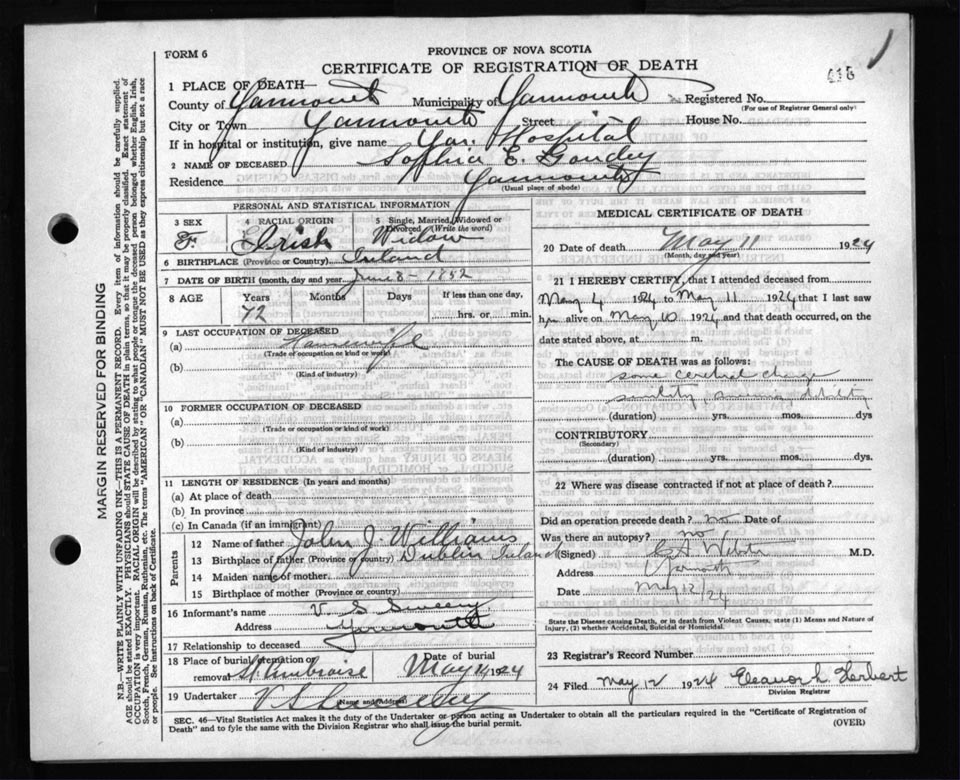 FORM 6
PROVINCE OF NOVA SCOTIA
CERTIFICATE OF REGISTRATION OF DEATH
1 PLACE OF DEATH—
County of Yarmouth Municipality of Yarmouth Registered No.
(For use of Registrar General only)
City or Town Yarmouth Street House No.
If in hospital or institution, give name Yar. Hospital
2 NAME OF DECEASED Sophia E. Goudey
Residence Yarmouth
(Usual place of abode)
PERSONAL AND STATISTICAL INFORMATION
3 SEX F. 4 RACIAL ORIGIN Irish 5 Single, Married, Widowed or Divorced (Write the word) Widow
6 BIRTHPLACE (Province or Country) Ireland
7 DATE OF BIRTH (month, day and year) June 8 - 1852
8 AGE Years Months Days If less than one day,
72 hrs. or min.
9 LAST OCCUPATION OF DECEASED
(a) Housewife
(Trade or occupation or kind or work)
(b)
(Kind of industry)
10 FORMER OCCUPATION OF DECEASED
(a)
(Trade or occupation or kind or work)
(b)
(Kind of industry)
11 LENGTH OF RESIDENCE (In years and months)
(a) At place of death
(b) In province
(c) In Canada (if an immigrant)
Parents
12 Name of father John J. Williams
13 Birthplace of father (Province or country) Dublin Ireland
14 Maiden name of mother
15 Birthplace of mother (Province or country)
16 Informant's name V S Sweeny
Address Yarmouth
17 Relationship to deceased
18 Place of burial, cremation or removal St. Ambroise Date of burial May 1924
19 Undertaker V S Sweeney
(Name and Address)
MEDICAL CERTIFICATE OF DEATH
20 Date of death May 11 1924
(Month, day and year)
21 I HEREBY CERTIFY, that I attended deceased from
May 4 1924 to May 11 1924 that I last saw
her alive on May 10 1924 and that death occurred, on the
date stated above, at m.
The CAUSE OF DEATH was as follows:
some cerebral change
senility, debility
(duration) yrs. mos. dys
CONTRIBUTORY
(Secondary)
(duration) yrs. mos. dys.
22 Where was disease contracted if not at place of death?
Did an operation precede death? no Date of
Was there an autopsy? no
(Signed) Webster M.D.
Address Yarmouth
Date May 12/24
State the Disease causing Death, or in death from Violent Causes, state (1) Means and Nature of Injury, (2) whether Accidental, Suicidal or Homicidal.
23 Registrar's Record Number
24 Filed May 12 1924 Eleanor L. Herbert
Division Registrar
SEC. 46—Vital Statistics Act makes it the duty of the Undertaker or person acting as Undertaker to obtain all the particulars required in the "Certificate of Registration of
Death" and to fyle the same with the Division Registrar who shall issue the burial permit.
(OVER)
MARGIN RESERVED FOR BINDING
N.B.—WRITE PLAINLY WITH UNFADING INK—THIS IS A PERMANENT RECORD. Every item of information should be carefully supplied.
AGE should be stated EXACTLY. PHYSICIANS should STATE CAUSE OF DEATH in plain terms, so that it may be properly classified. Exact statement of
OCCUPATION is very important. RACIAL ORIGIN will be described by stating to what people or tongue the deceased person belonged whether English, Irish,
Scotch, French, German, Russian, Ruthenian, etc. The terms "AMERICAN" or "CANADIAN" MUST NOT BE USED as they express citizenship but not a race
or people. See instructions on back of Certificate.